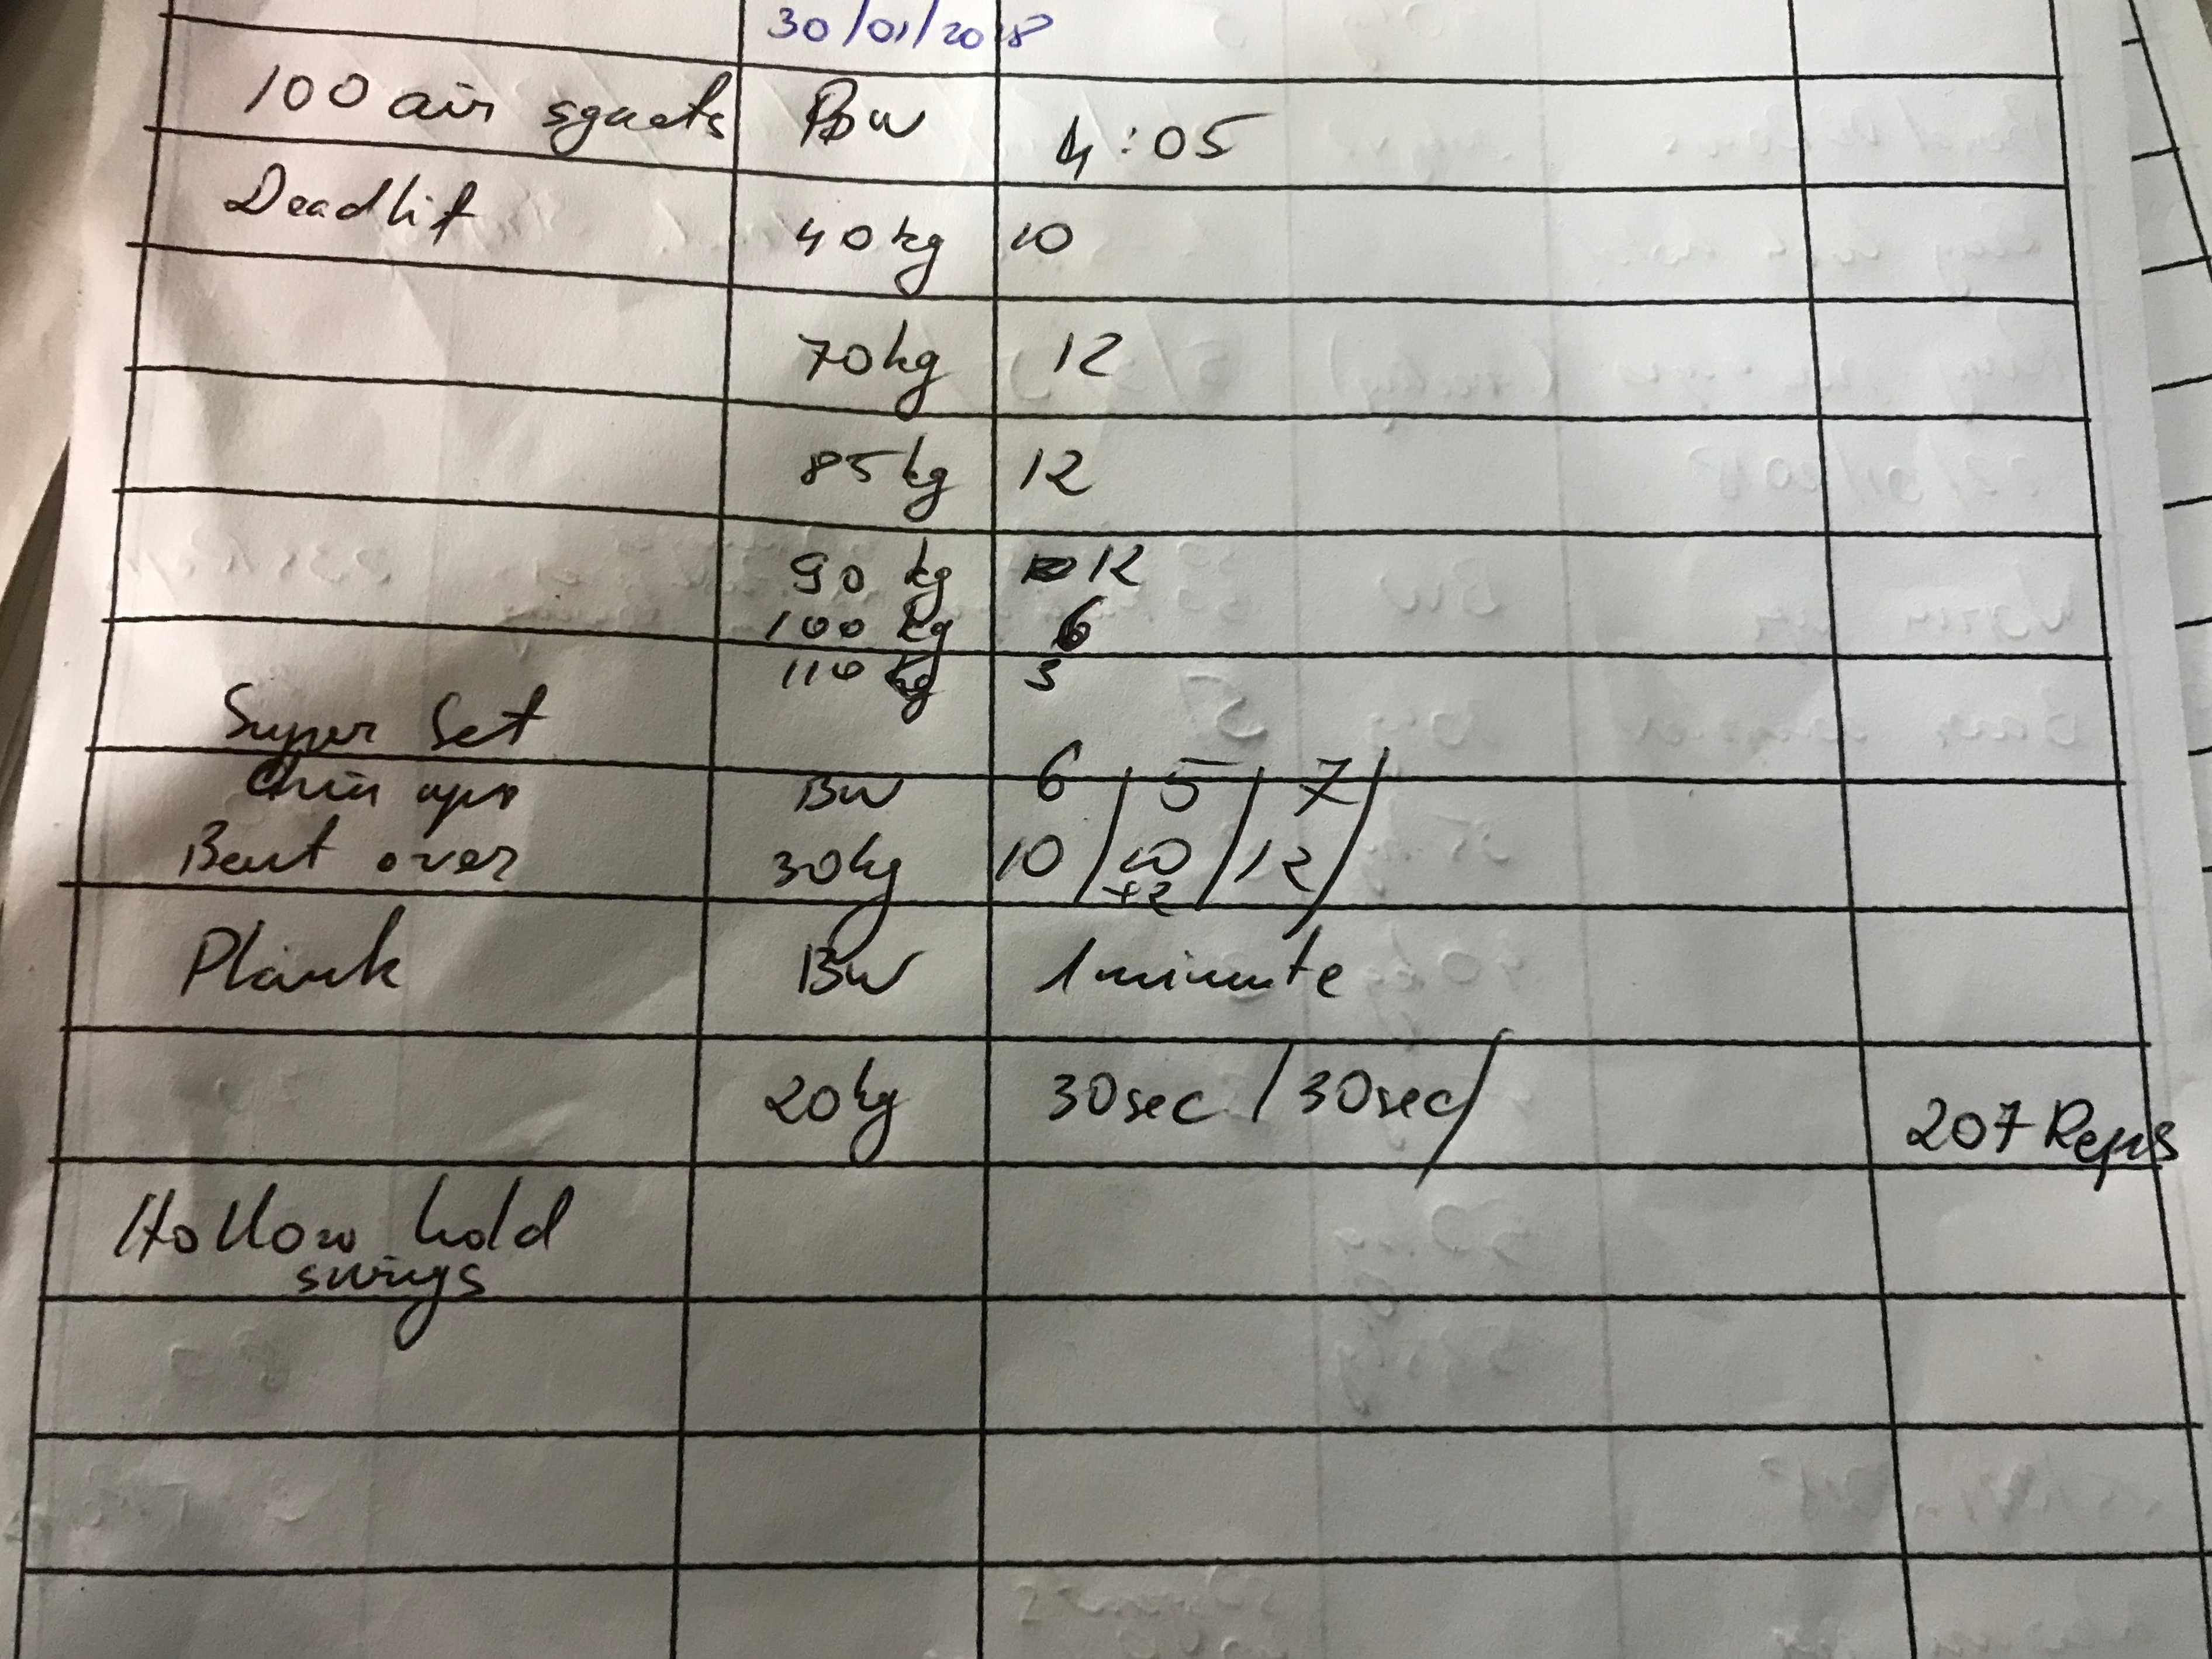 30/01/2018
100 air squats BW 4:05
Deadlift 40kg 10
70kg 12
85kg 12
90 kg 12
100 kg 6
110 kg 3
Super Set
Chin ups BW 6 / 5 / 7 /
Bent over 30kg 10 / 10 / 12 /
+2
Plank BW 1 minute
20kg 30sec / 30sec /
207 Reps
Hollow hold
swings